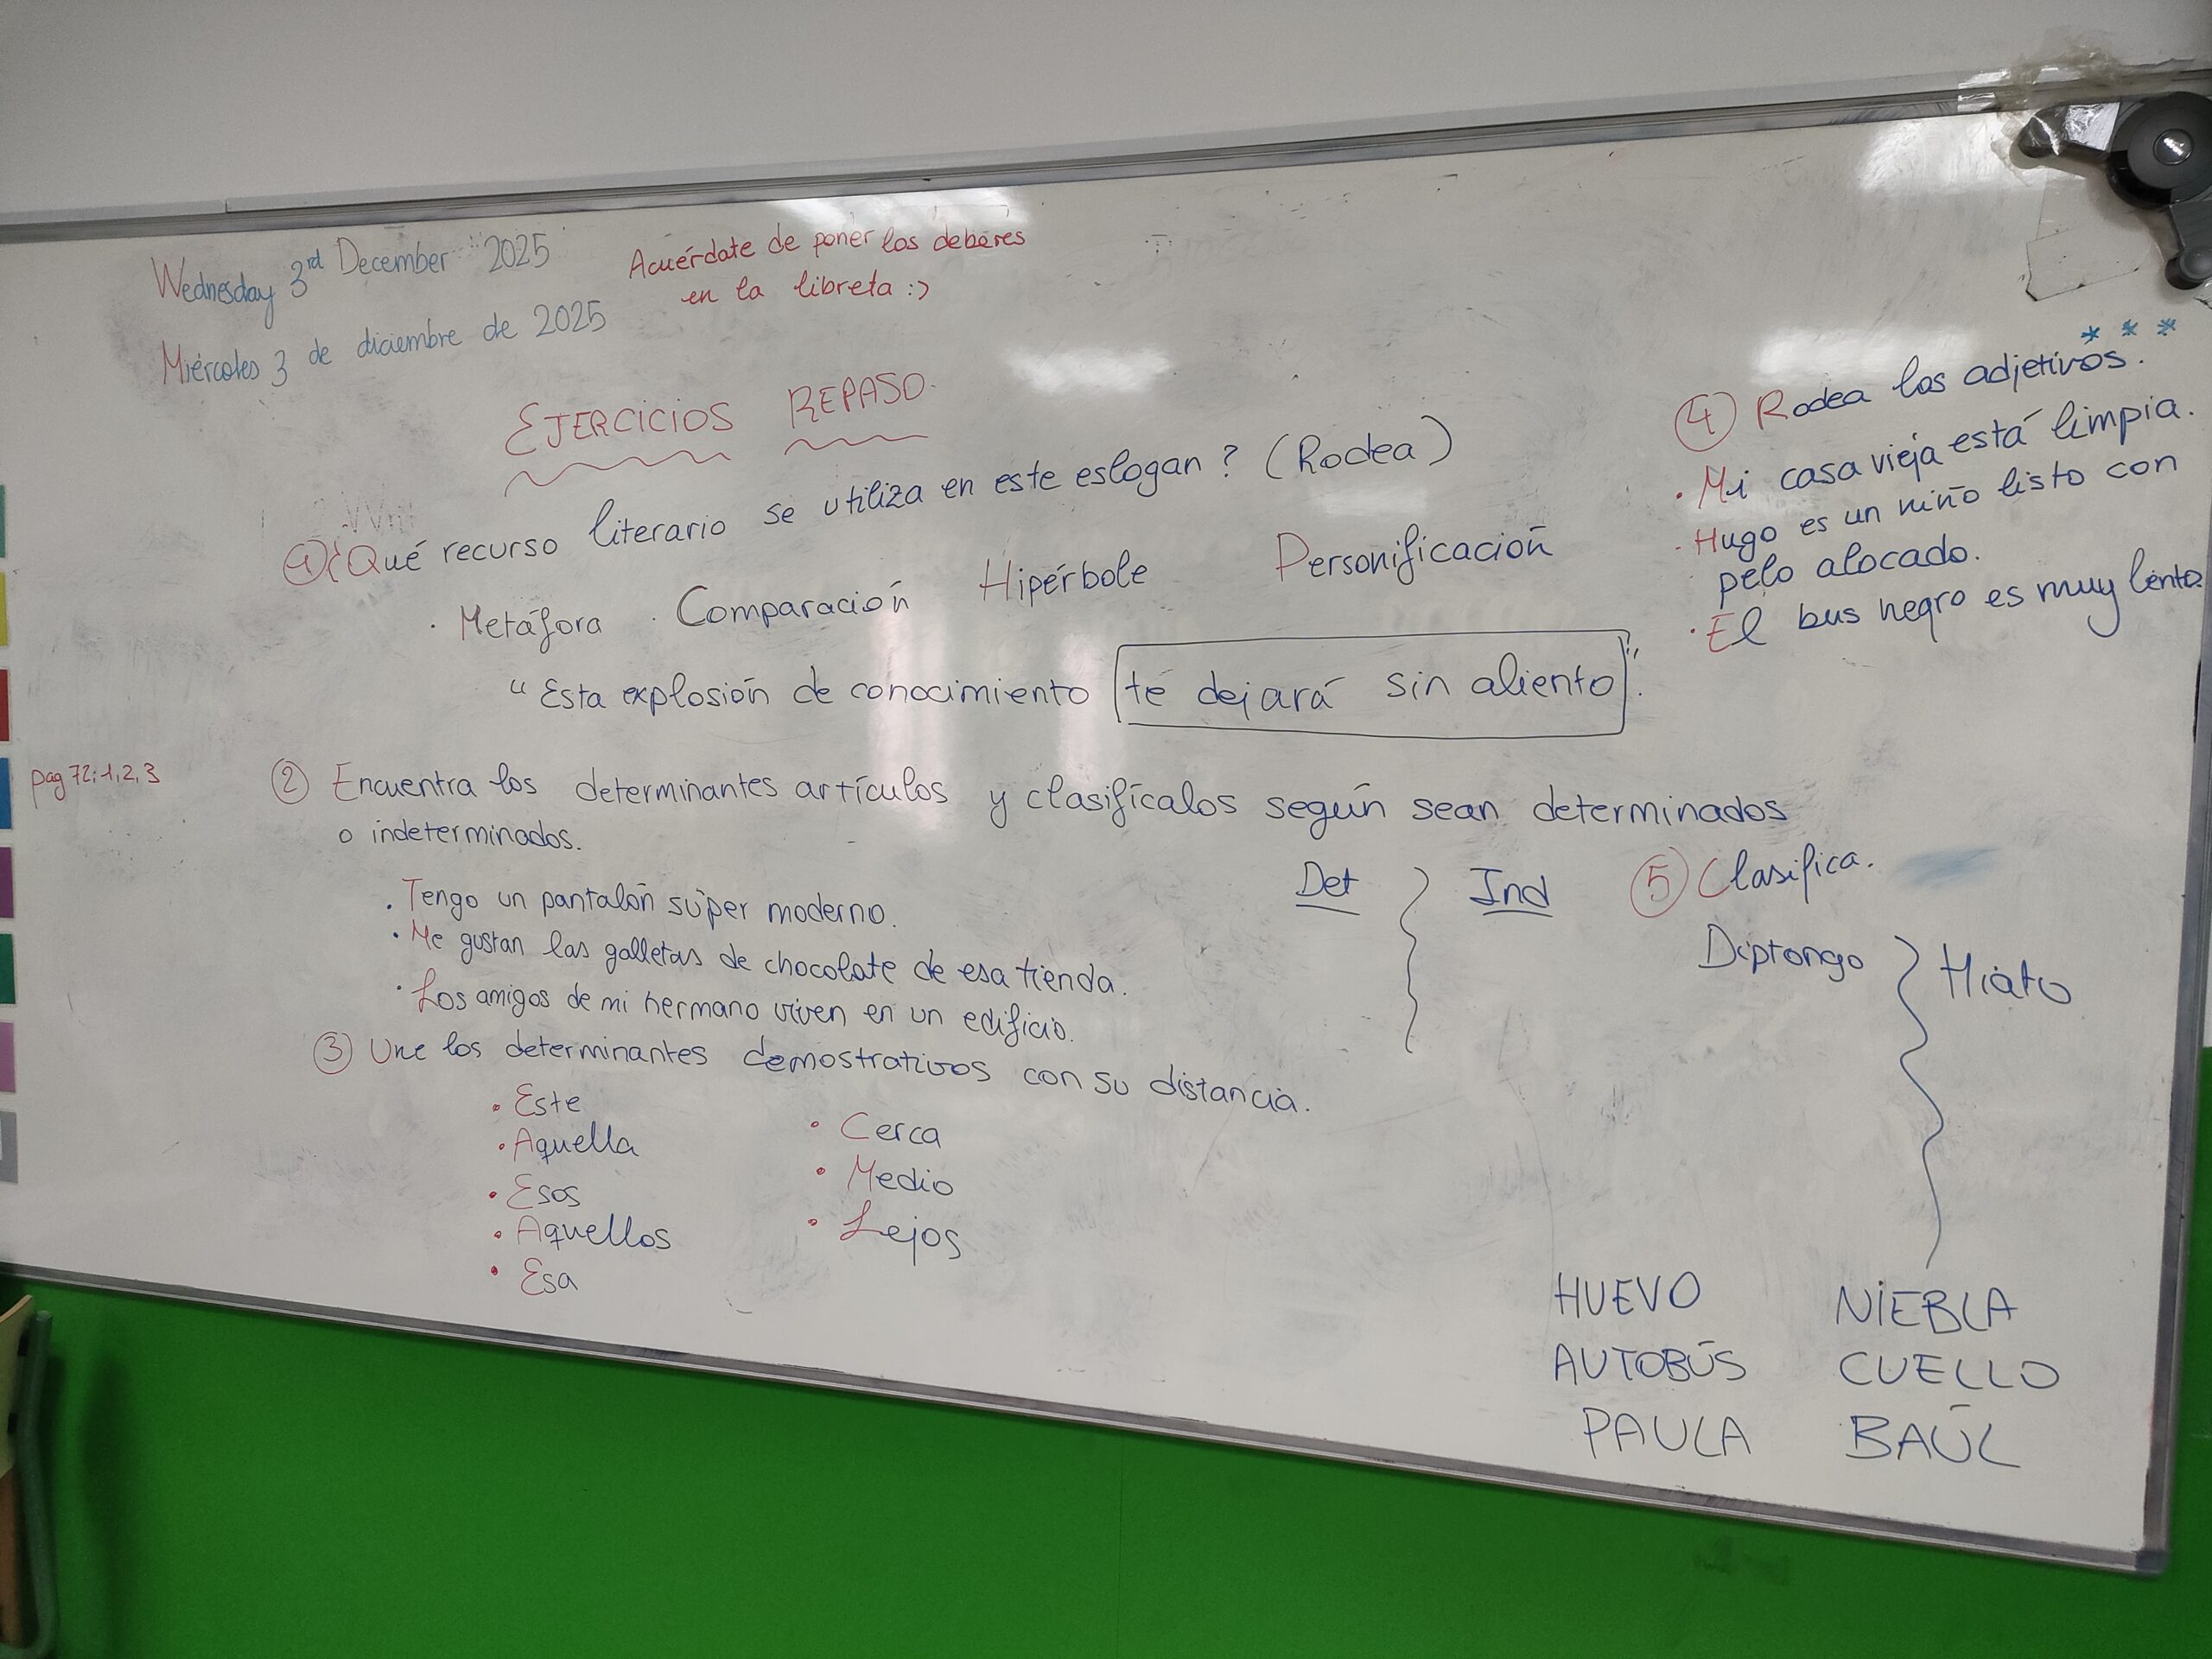 Wednesday 3rd December 2025
Miércoles 3 de diciembre de 2025
Acuérdate de poner los deberes
en la libreta :)
EJERCICIOS REPASO.
① ¿Qué recurso literario se utiliza en este eslogan? (Rodea)
· Metáfora · Comparación Hipérbole Personificación
"Esta explosión de conocimiento te dejará sin aliento".
pag 72: 1, 2, 3
② Encuentra los determinantes artículos y clasifícalos según sean determinados
o indeterminados.
· Tengo un pantalón súper moderno.
· Me gustan las galletas de chocolate de esa tienda.
· Los amigos de mi hermano viven en un edificio.
Det Ind
③ Une los determinantes demostrativos con su distancia.
· Este
· Aquella
· Esos
· Aquellos
· Esa
· Cerca
· Medio
· Lejos
* * *
④ Rodea los adjetivos.
· Mi casa vieja está limpia.
· Hugo es un niño listo con
pelo alocado.
· El bus negro es muy lento.
⑤ Clasifica.
Diptongo Hiato
HUEVO NIEBLA
AUTOBÚS CUELLO
PAULA BAÚL